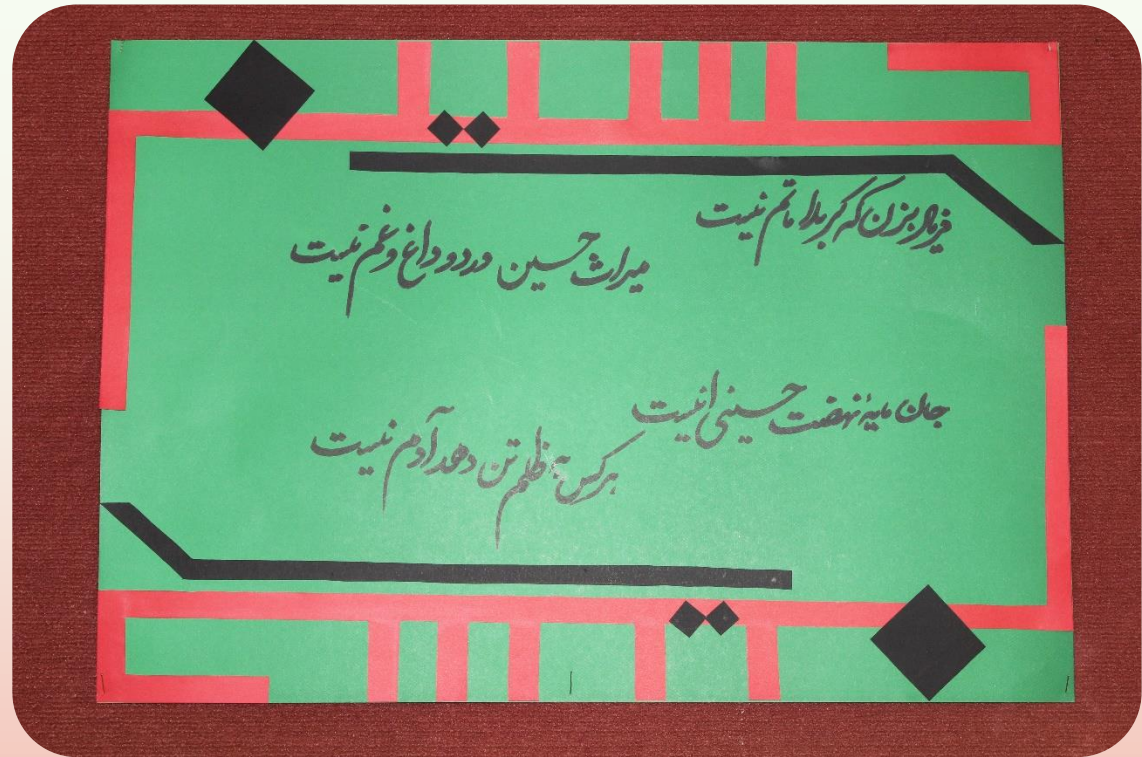 فریاد بزن که کربلا ماتم نیست
میراث حسین درد و داغ و غم نیست
جان مایهٔ نهضت حسینی نیست
هر کس به ظلم تن دهد آدم نیست